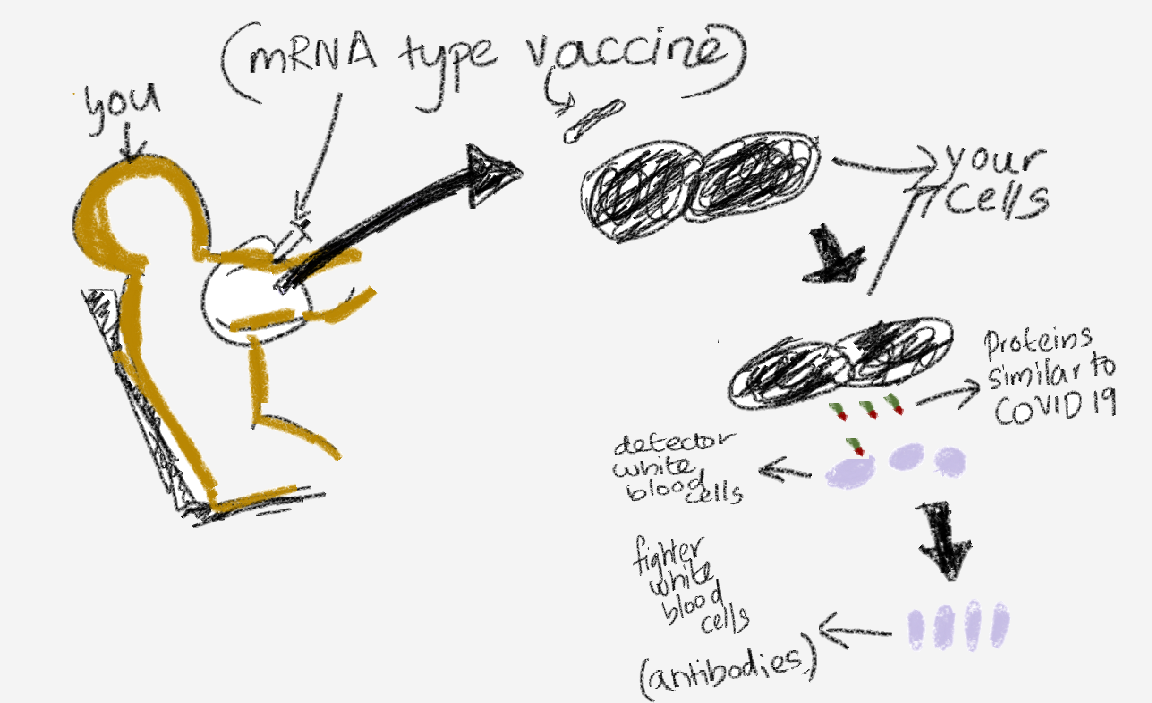 (mRNA type vaccine)
you
your
cells
Proteins
similar to
COVID 19
detector
white
blood
cells
fighter
white
blood
cells
(antibodies)